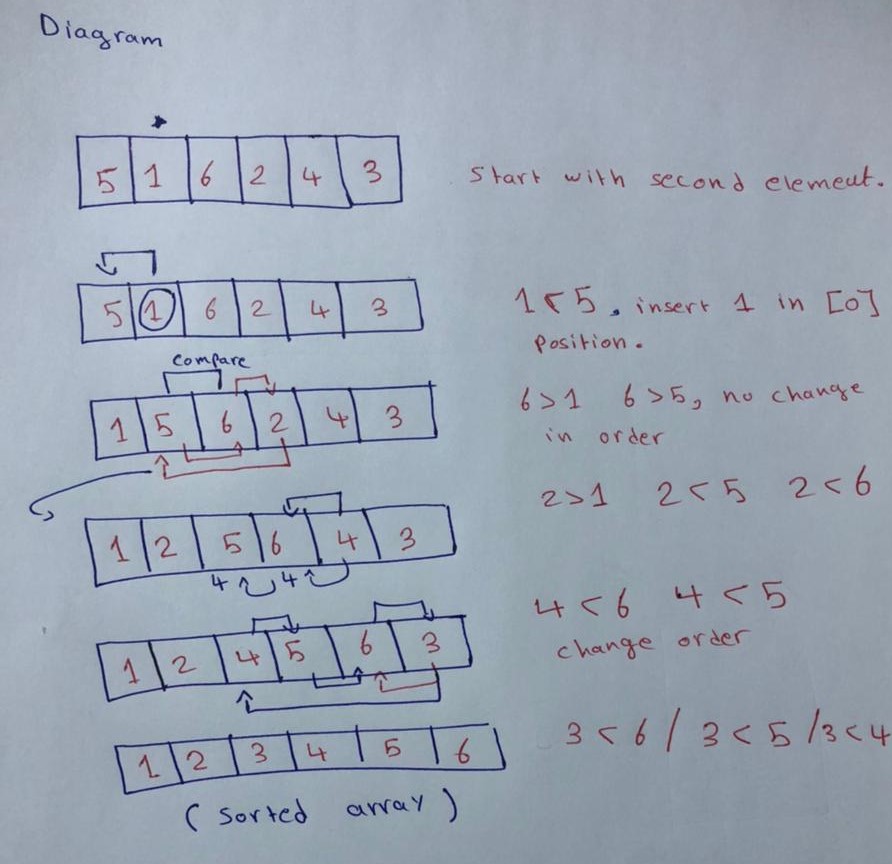 Diagram
5 1 6 2 4 3
Start with second element.
5 1 6 2 4 3
1 < 5 . insert 1 in [0]
position.
compare
1 5 6 2 4 3
6 > 1 6 > 5, no change
in order
2 > 1 2 < 5 2 < 6
1 2 5 6 4 3
4 4
4 < 6 4 < 5
change order
1 2 4 5 6 3
3 < 6 / 3 < 5 / 3 < 4
1 2 3 4 5 6
( Sorted array )